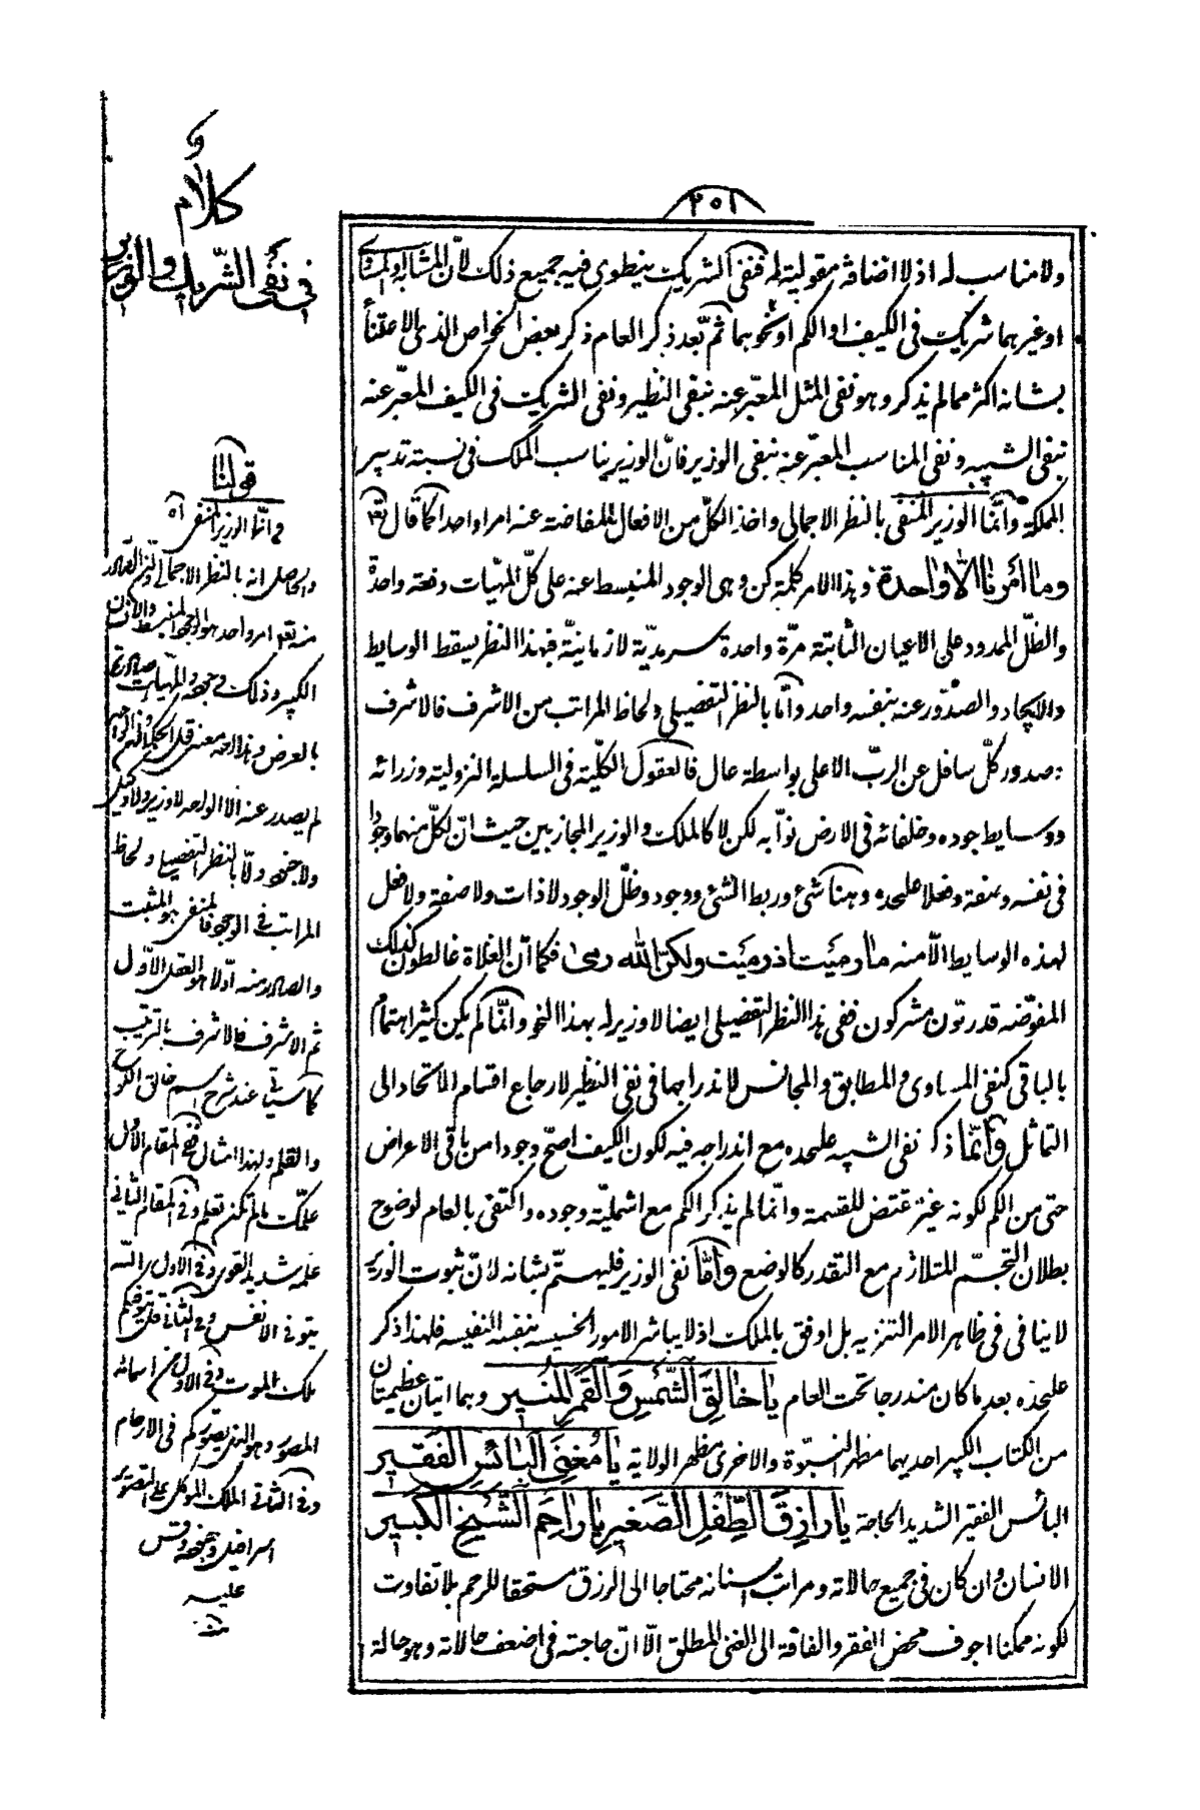 ٢٥١
ولا مناسب له اذ لا اضافة مقولية له فنفى الشريك ينطوى فيه جميع ذلك لانّ المشابه والمساوى
او غيرهما شريك فى الكيف او الكم او نحوهما ثمّ بعد ذكر العام ذكر بعض الخواص الذى الاعتناء
بشانه اكثر مما لم يذكر وهو نفى المثل المعبّر عنه بنفى النظير ونفى الشريك فى الكيف المعبّر عنه
بنفى الشبيه ونفى المناسب المعبّر عنه بنفى الوزير فانّ الوزير يناسب الملك فى نسبة تدبير
المملكة وانّما الوزير المنفى بالنظر الاجمالى واخذ الكلّ من الافعال المفاضة عنه امرا واحدا كما قال تع
وما امرنا الّا واحدة وهذا الامر كلمة كن وهى الوجود المنبسط عنه على كلّ المهيّات دفعة واحدة
والظلّ الممدود على الاعيان الثابتة مرّة واحدة سرمديّة لا زمانيّة فبهذا النظر يسقط الوسايط
والايجاد والصدور عنه بنفسه واحد وامّا بالنظر التفصيلى ولحاظ المراتب من الاشرف فالاشرف
وصدور كلّ سافل عن الربّ الاعلى بواسطة عال فالعقول الكلّية فى السلسلة النزولية وزرائه
ووسايط جوده وخلفائه فى الارض نوّابه لكن لا كالملك والوزير المجازيين حيث انّ لكلّ منهما وجودا
فى نفسه وصفة وفعلا عليحده وهنا شئ وربط الشئ ووجود وظلّ الوجود لا ذات ولا صفة ولا فعل
لهذه الوسايط الّا منه ما رميت اذ رميت ولكنّ الله رمى فكما انّ الغلاة غالطون كذلك
المفوّضه قدريّون مشركون ففى هذا النظر التفصيلى ايضا لا وزير له بهذا النحو وانّما لم يكن كثير اهتمام
بالباقى كنفى المساوى والمطابق والمجانس لاندراجها فى نفى النظير لارجاع اقسام الاتحاد الى
التماثل وانّما ذكر نفى الشبيه عليحده مع اندراجه فيه لكون الكيف اصحّ وجودا من باقى الاعراض
حتى من الكم لكونه غير مقتض للقسمة وانّما لم يذكر الكم مع اشمليّة وجوده واكتفى بالعام لوضوح
بطلان التجسّم المتلازم مع التقدر كالوضع وامّا نفى الوزير فليهتمّ بشانه لانّ ثبوت الوزير
لا ينافى فى ظاهر الامر التنزيه بل اوفق بالملك اذ لا يباشر الامور الخسيسه بنفسه النفيسه فلهذا ذكر
عليحده بعد ما كان مندرجا تحت العام يا خالِقَ الشَّمْسِ وَالْقَمَرِ الْمُنيرِ وهما آيتان عظيمتان
من الكتاب الكبير احديهما مظهر النبوّة والاخرى مظهر الولاية يا مُغْنِىَ الْبائِسِ الْفَقيرِ
البائس الفقير الشديد الحاجة يا رازِقَ الطِّفْلِ الصَّغيرِ يا راحِمَ الشَّيْخِ الْكَبيرِ
الانسان وان كان فى جميع حالاته ومراتب اسنانه محتاجا الى الرزق مستحقا للرحم بلا تفاوت
لكونه ممكنا اجوف محض الفقر والفاقة الى الغنى المطلق الّا انّ حاجته فى اضعف حالاته وهو حالة
كلام
فى نفى الشّريك والوزير
قولنا
وانّما الوزير المنفى اه
والحاصل انه بالنظر الاجمالى
منه تع امر واحد هو الوجود المنبسط
الكبير وذلك
بالعرض وهذا احد معنى قول الحكيم
لم يصدر عنه الا الواحد لا وزير ولا وكيل
ولا جنود وامّا بالنظر التفصيلى ولحاظ
المراتب فى الوجود فالمنفى هو المثبت
والصادر منه اوّلا هو العقل الاوّل
ثم الاشرف فالاشرف بالترتيب
كما سياتى عند شرح اسم خالق اللوح
والقلم ولهذا امثال ففى المقام الاول
علّمك ما لم تكن تعلم وفى المقام الثانى
علمه شديد القوى وفى الاول الله
يتوفى الانفس وفى الثانى قل يتوفيكم
ملك الموت وفى الاول من اسمائه
المصوّر وهو الذى يصوّركم فى الارحام
وفى الثانى الملك الموكل على التصوير
اسرافيل وجنوده وقس
عليه
منه